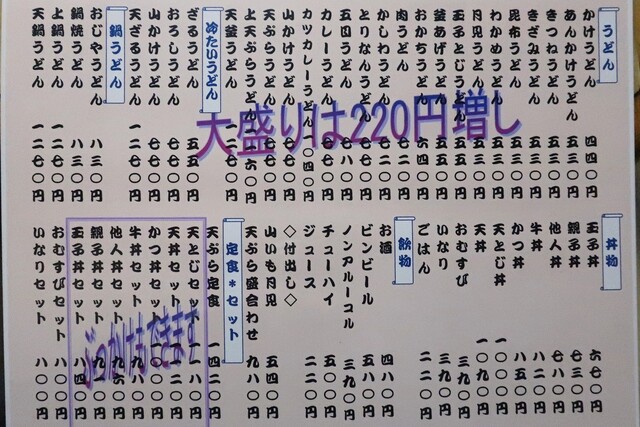 うどん
かけうどん 四四〇円
あんかけうどん 五三〇円
きつねうどん 五三〇円
きざみうどん 五三〇円
昆布うどん 五三〇円
わかめうどん 五三〇円
月見うどん 五三〇円
玉子とじうどん 五五〇円
釜あげうどん 五五〇円
おかちうどん 六四〇円
肉うどん 七二〇円
かしわうどん 七二〇円
とりなんうどん 七七〇円
五目うどん 七八〇円
カレーうどん 七七〇円
カツカレーうどん 一〇四〇円
山かけうどん 七七〇円
天ぷらうどん 七七〇円
上天ぷらうどん 一二六〇円
天釜うどん 一二七〇円
冷たいうどん
ざるうどん 五五〇円
おろしうどん 七七〇円
山かけうどん 七七〇円
天ざるうどん 一二七〇円
鍋うどん
おじやうどん 八三〇円
鍋焼うどん 八三〇円
上鍋うどん 一二七〇円
天鍋うどん 一二七〇円
大盛りは220円増し
丼物
玉子丼 六七〇円
親子丼 七三〇円
他人丼 七八〇円
牛丼 八二〇円
かつ丼 八五〇円
天とじ丼 一〇九〇円
天丼 一〇九〇円
おむすび 三九〇円
いなり 三九〇円
ごはん 二二〇円
飲物
お酒 四八〇円
ビンビール 五八〇円
ノンアルコール 三九〇円
チューハイ 五〇〇円
ジュース 二二〇円
◇付出し◇
山いも月見 五四〇円
天ぷら盛合わせ 九八〇円
定食＊セット
天ぷら定食 一四二〇円
天とじ丼セット 一一八〇円
天丼セット
かつ丼セット
牛丼セット
他人丼セット 九六〇円
親子丼セット 九〇〇円
玉子丼セット 八四〇円
おむすびセット 八〇〇円
いなりセット 八〇〇円
ぶっかけもできます